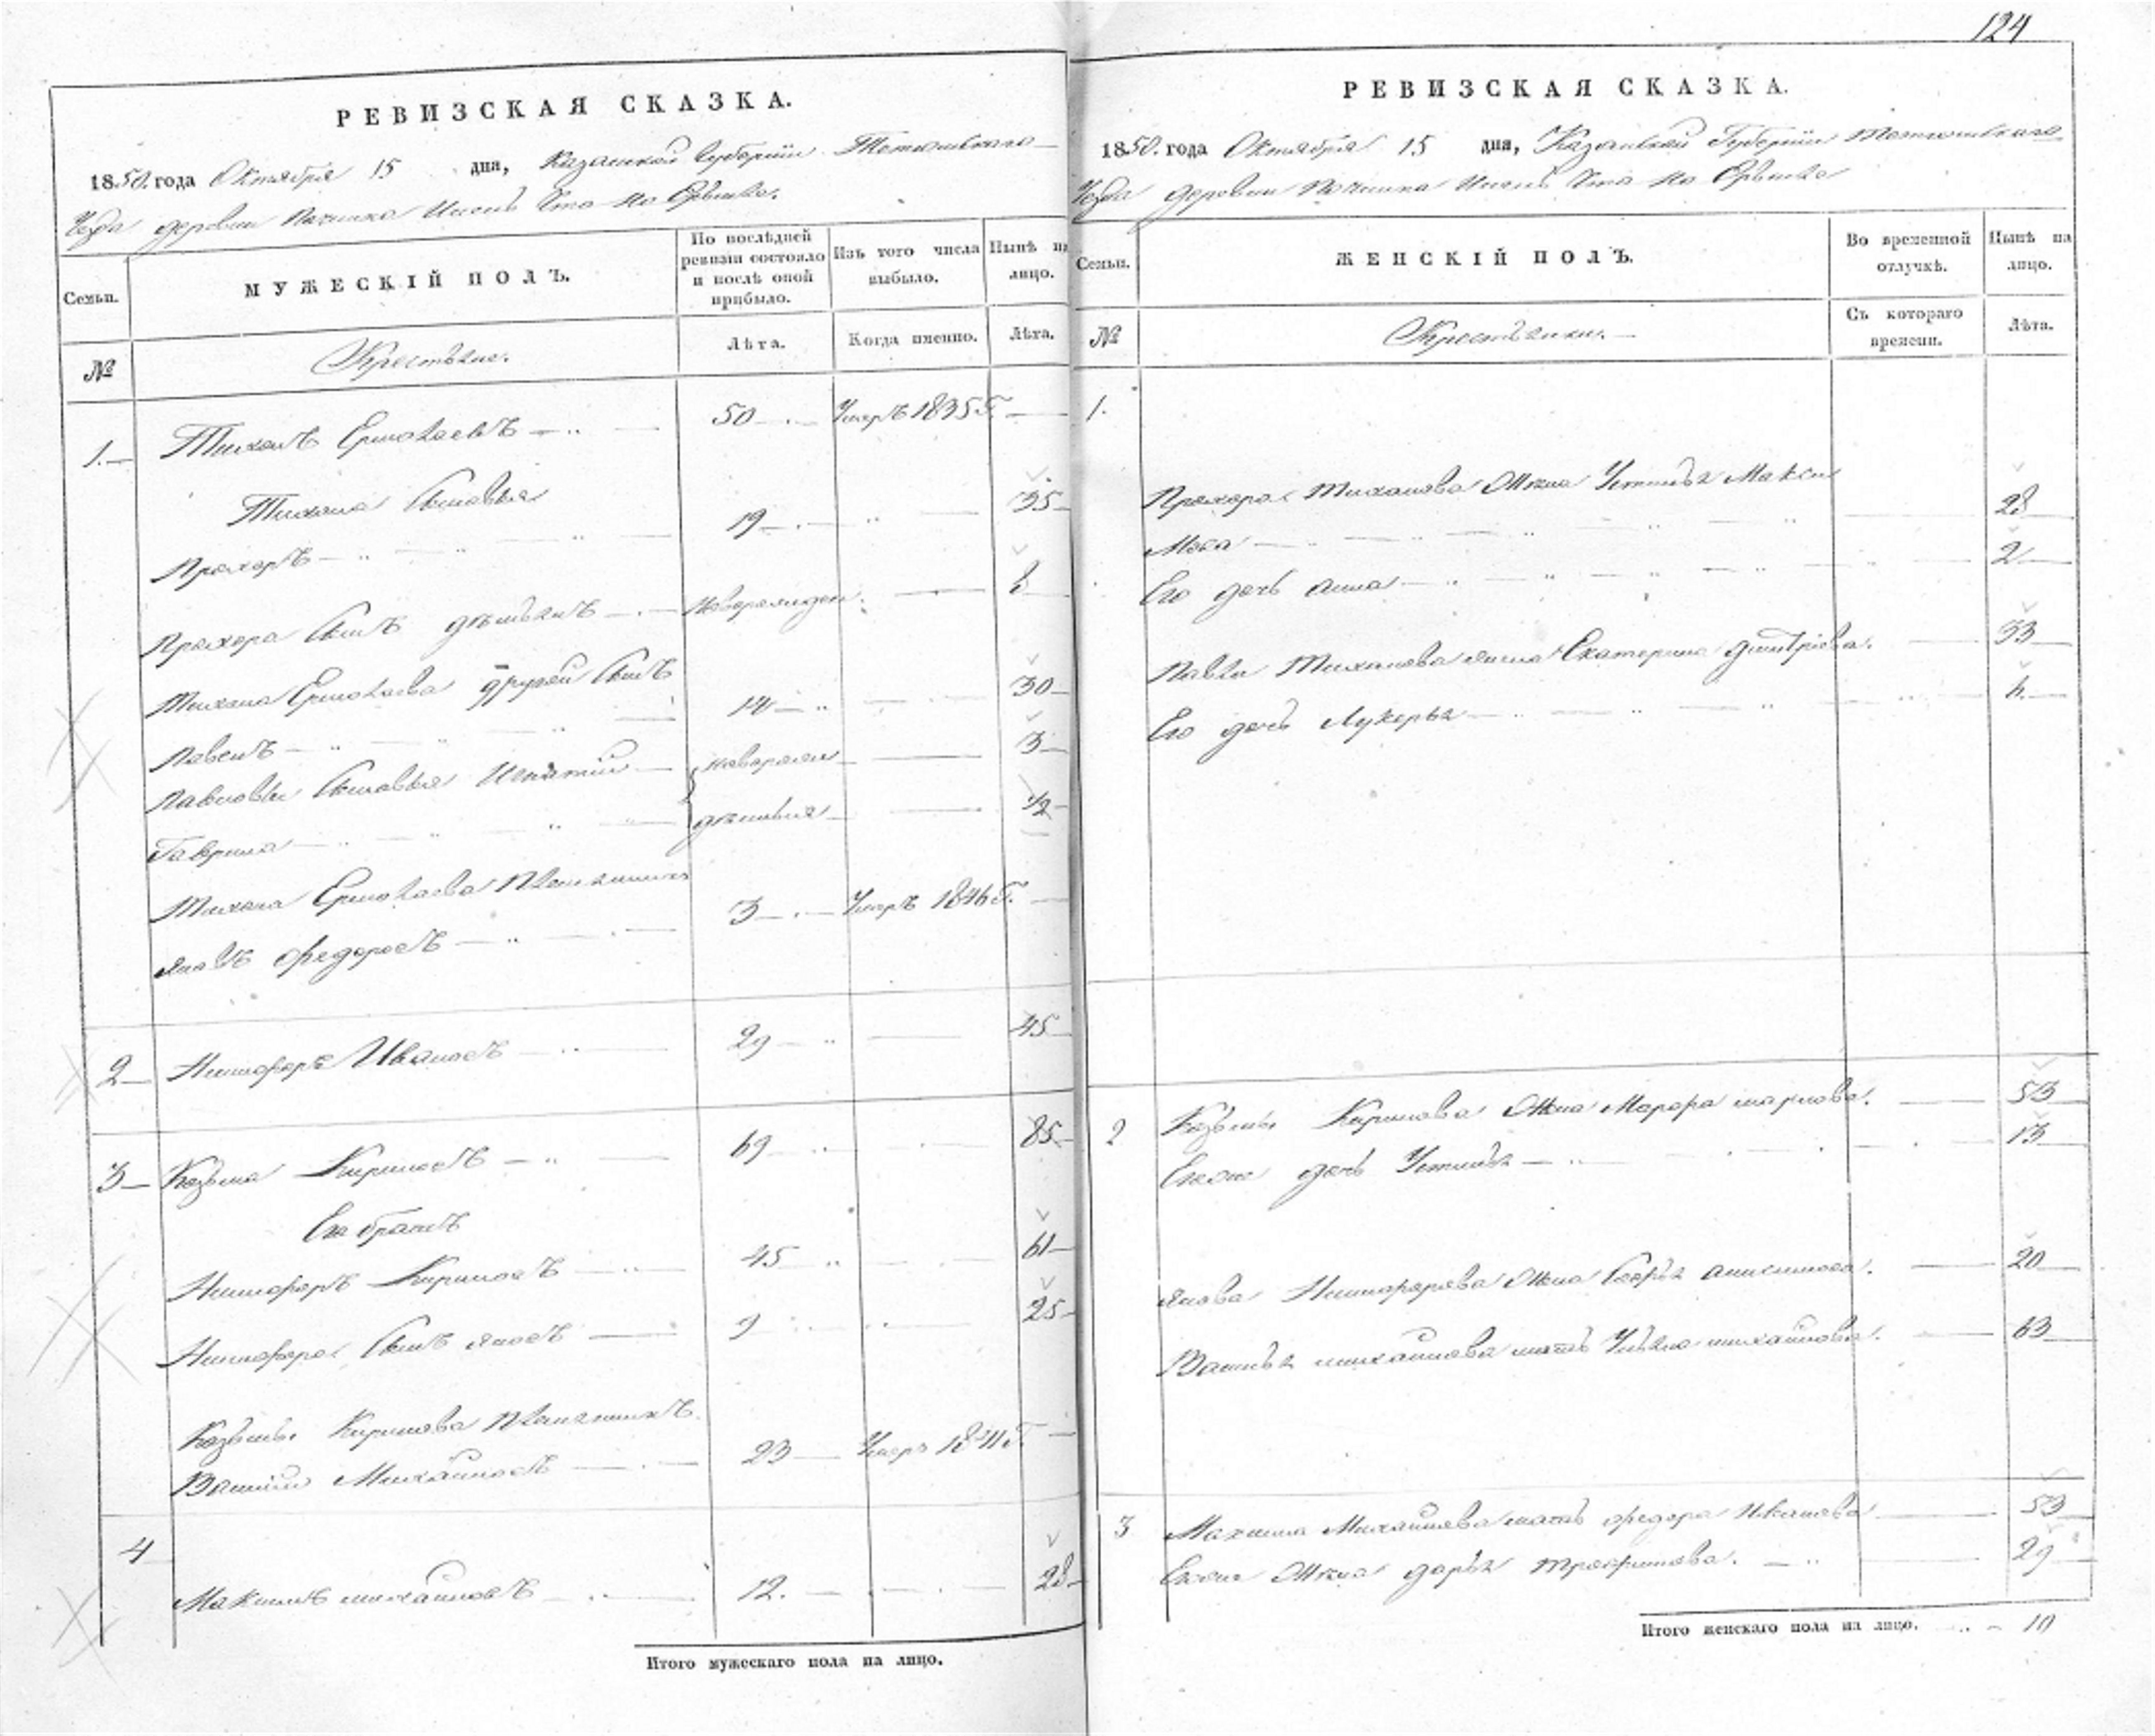 124
РЕВИЗСКАЯ СКАЗКА.
1850. года Октября 15 дня, Казанской Губернии Тетюшскаго
Уезда деревни Починка
Семьи.
МУЖЕСКІЙ ПОЛЪ.
По послѣдней ревизіи состояло и послѣ оной прибыло.
Изъ того числа выбыло.
Нынѣ на лицо.
№
Крестьяне.
Лѣта.
Когда именно.
Лѣта.
1. Тихонъ Ермолаевъ 50 Умеръ 1835 Г.
Тихона Сыновья
Прохоръ 19 35
Прохора Сынъ новорожден. 8
Тихона Ермолаева другой Сынъ
Павелъ 14 30
Павловы Сыновья Игнатий новорож 3
Гаврила 1/2
Тихона Ермолаева Племянникъ
Яковъ Федоровъ 3 Умеръ 1846 Г.
2 Никифоръ Ивановъ 29 45
3 Козьма Кириловъ 69 85
Его братъ
Никифоръ Кириловъ 45 61
Никифора Сынъ Яковъ 9 25
Козьмы Кирилова Племянникъ
Василий Михайловъ 23 Умеръ 1841 Г.
4
Максимъ михайловъ 12. 28
Итого мужескаго пола на лицо.
РЕВИЗСКАЯ СКАЗКА.
1850. года Октября 15 дня, Казанской Губернии Тетюшскаго
Уезда деревни Починка
Семьи.
ЖЕНСКІЙ ПОЛЪ.
Во временной отлучкѣ.
Нынѣ на лицо.
№
Съ котораго времени.
Лѣта.
1.
Прохора Тихонова Жена Устинья Макси
мова 28
Его дочь Анна 2
Павла Тихонова жена Екатерина дмитріева. 33
Его дочь Лукерья 4
2 Козьмы Кирилова Жена Марфа маркова. 53
Ея дочь Устинья 13
Якова Никифорова Жена 20
Василья михайлова мать Ульяна михайлова. 63
3 Максима Михайлова мать федора Иванова 53
Его Жена дарья трофимова. 29
Итого женскаго пола на лицо. 10